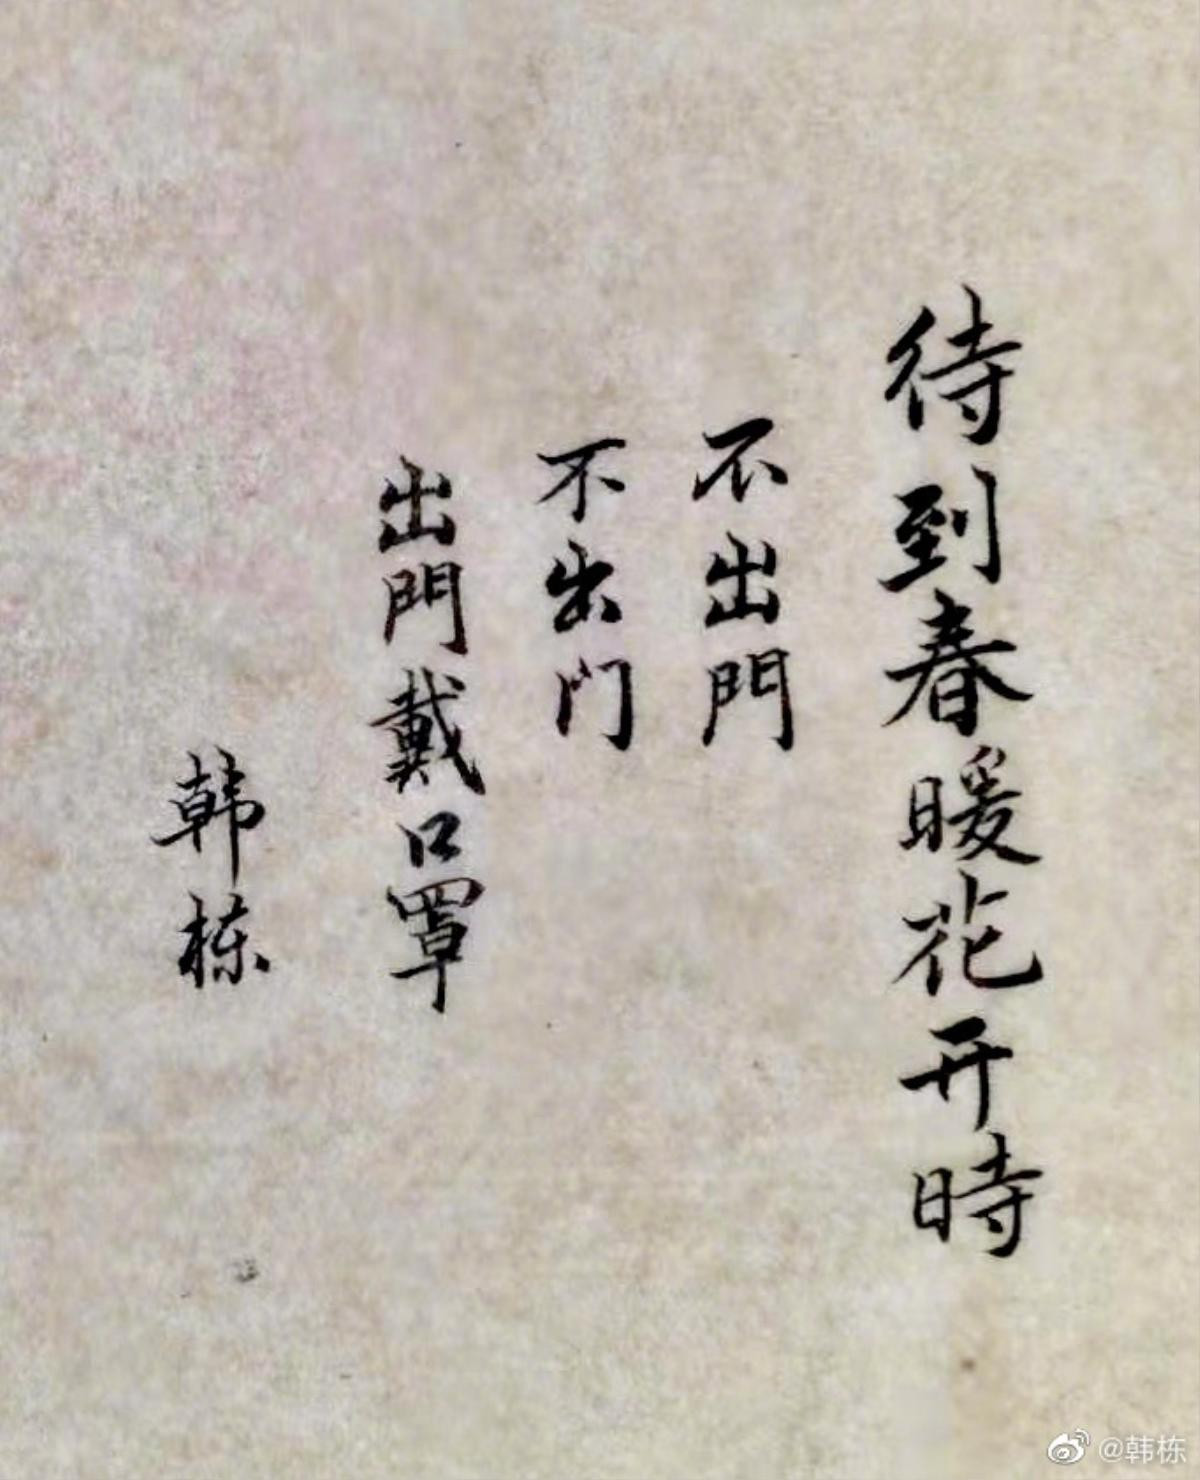 待到春暖花开時
不出門
不出门
出門戴口罩
韩栋
@韩栋